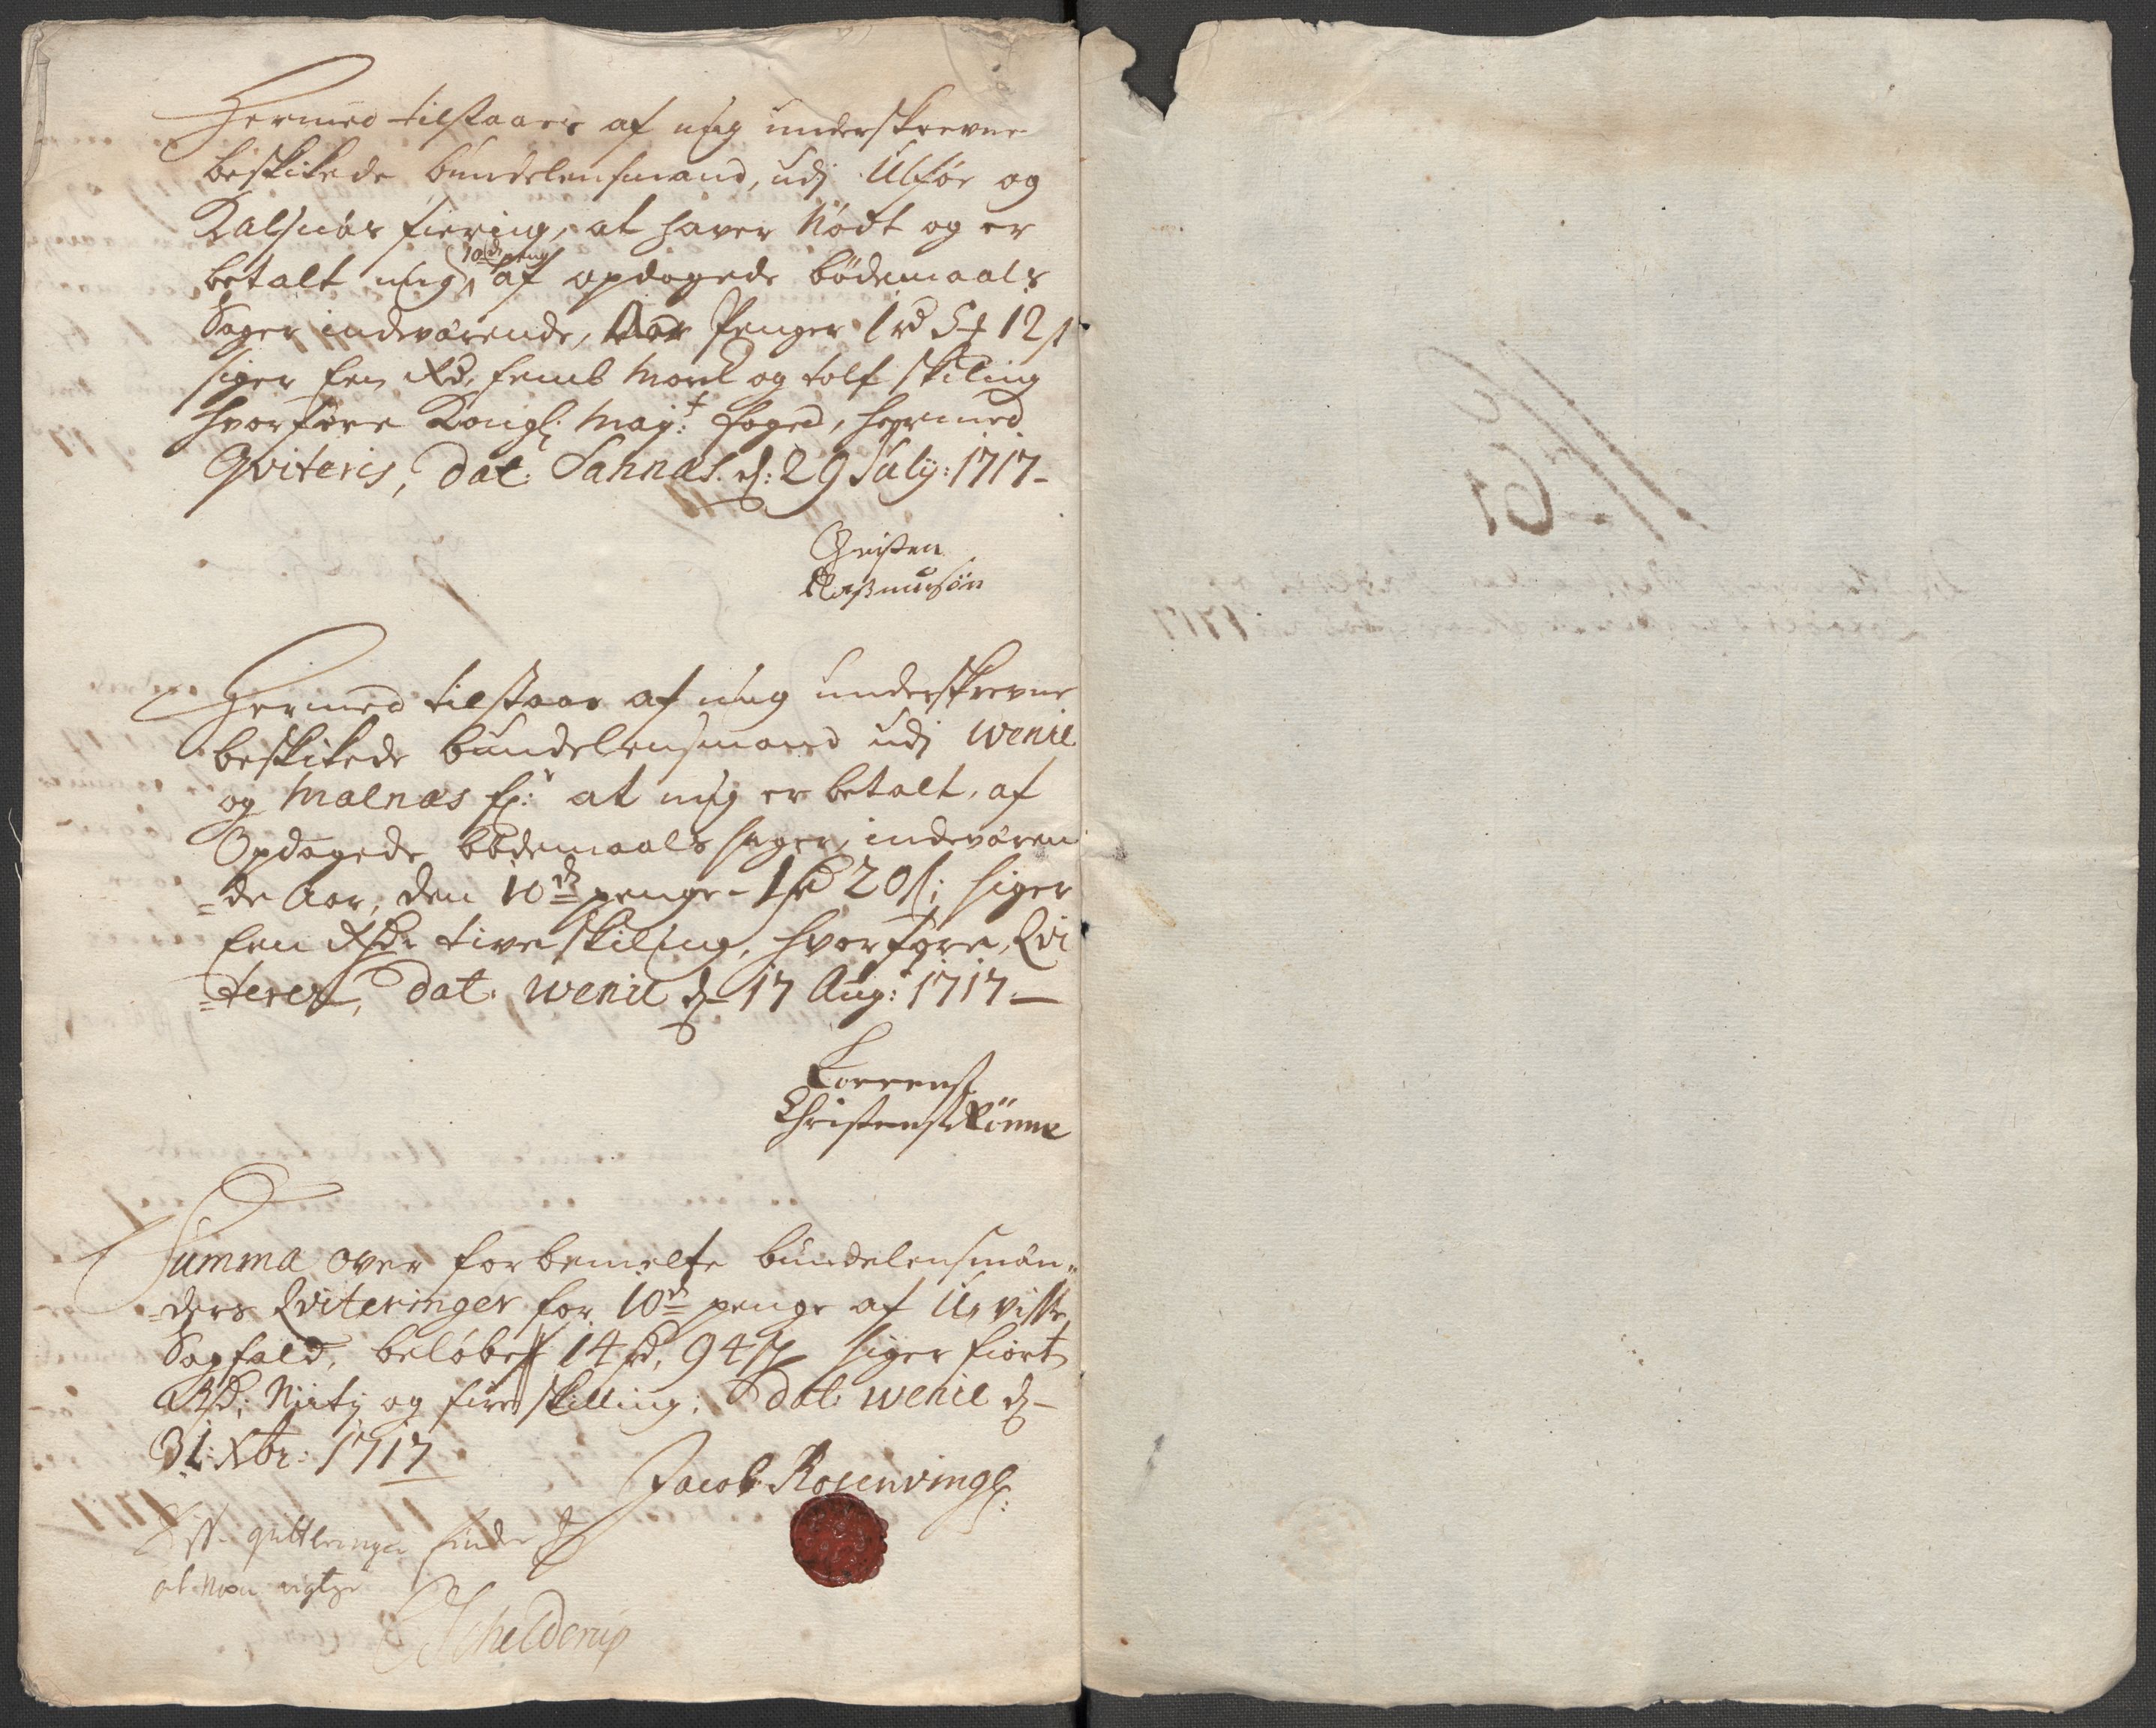 Hermed tilstaaes af mig underskrevne
beskikede bundelensmand, udj Ulføe og
Kalsnæs fiering, at haver Nødt og er
betalt mig 10de peng af opdagede bödemaals
Sager indeværende, Aar Penger 1 rd 5 ƒ 12 s
siger Een Rd, femb Marck og tolf skiling
hvorføre Kongl: May:t foged, hermed
Qviteris, dat: Sannæs. d: 29 July: 1717-
Christen
Rasmusøn
Hermed tilstaar af mig underskrevne
beskikede bundelensmand udj Wenie
og Malnæs f: at mig er betalt, af
Opdagede bödemaals sager, indeværen
=de Aar, den 10de penge - 1 rd 20 s; siger
Een Rdr tive skiling, hvorføre, Qvi
=teres, dat. Wenie d- 17 Aug: 1717-
Lorrens
Christens Rönne
Summa over forbemelte bundelensmæn=
=ders Qviteringer for 10de penge af U,visse
Sagfald, beløbes 14 rd, 94 s siger fiort
Rd; Nity og fire skilling; dat: Wenie d-
31: Xbr: 1717
Jacob Rosenvinge:
Disse qvitteringer finder Jeg
at være rigtige
Schelderup
No 61
1717